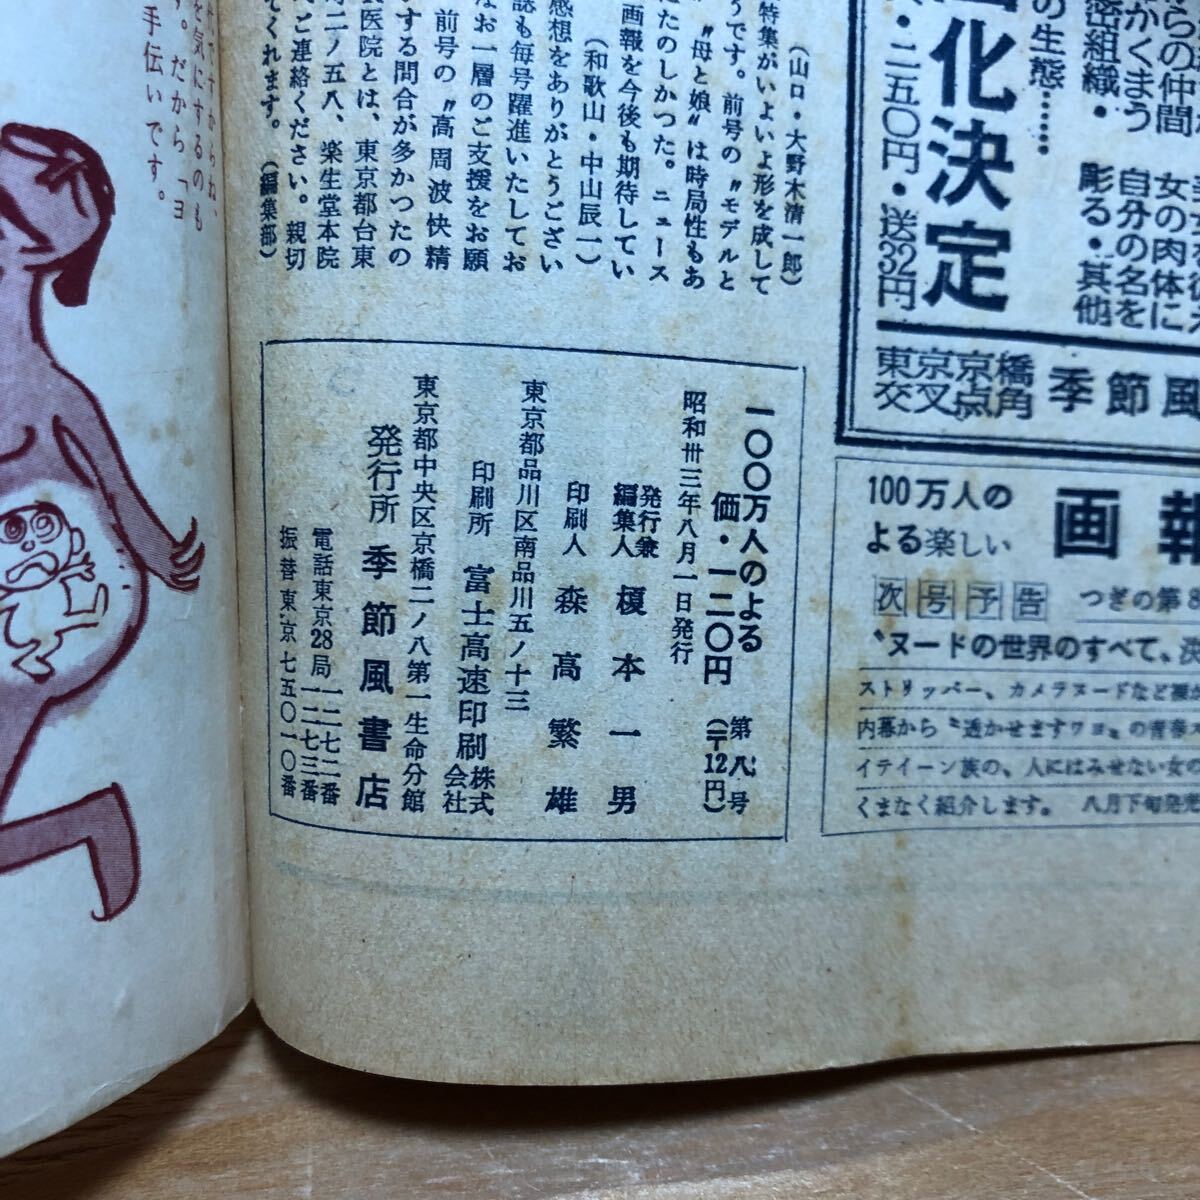 らの仲間
かくまう
密組織・
の生態……
女の肉体に
自分の名を
彫る・其他
化決定
・二五〇円・送32円
東京京橋
交叉点角
季節風
(山口・大野木清一郎)
特集がいよいよ形を成して
うです。前号の〝モデルと
〝母と娘〟は時局性もあ
たのしかつた。ニュース
画報を今後も期待してい
(和歌山・中山辰一)
感想をありがとうござい
誌も毎号躍進いたしてお
なお一層のご支援をお願
前号の〝高周波快精
する問合が多かつたの
医院とは、東京都台東
二ノ五八、楽生堂本院
と連絡ください。親切
てくれます。(編集部)
一〇〇万人のよる 第八号
価・一二〇円 (〒12円)
昭和卅三年八月一日発行
発行兼
編集人 榎本一男
印刷人 森高繁雄
東京都品川区南品川五ノ十三
印刷所 富士高速印刷株式会社
東京都中央区京橋二ノ八第一生命分館
発行所 季節風書店
電話東京28局一二七二番
一二七三番
振替東京七五〇一〇番
100万人の
よる楽しい
画報
次号予告 つぎの第
〝ヌードの世界のすべて〟
ストリッパー、カメラヌードなど
内幕から〝透かせますワョ〟の青春
イテイーン族の、人にはみせない女の
くまなく紹介します。 八月下旬発売
を気にするのも
す。だから「ヨ
手伝いです。